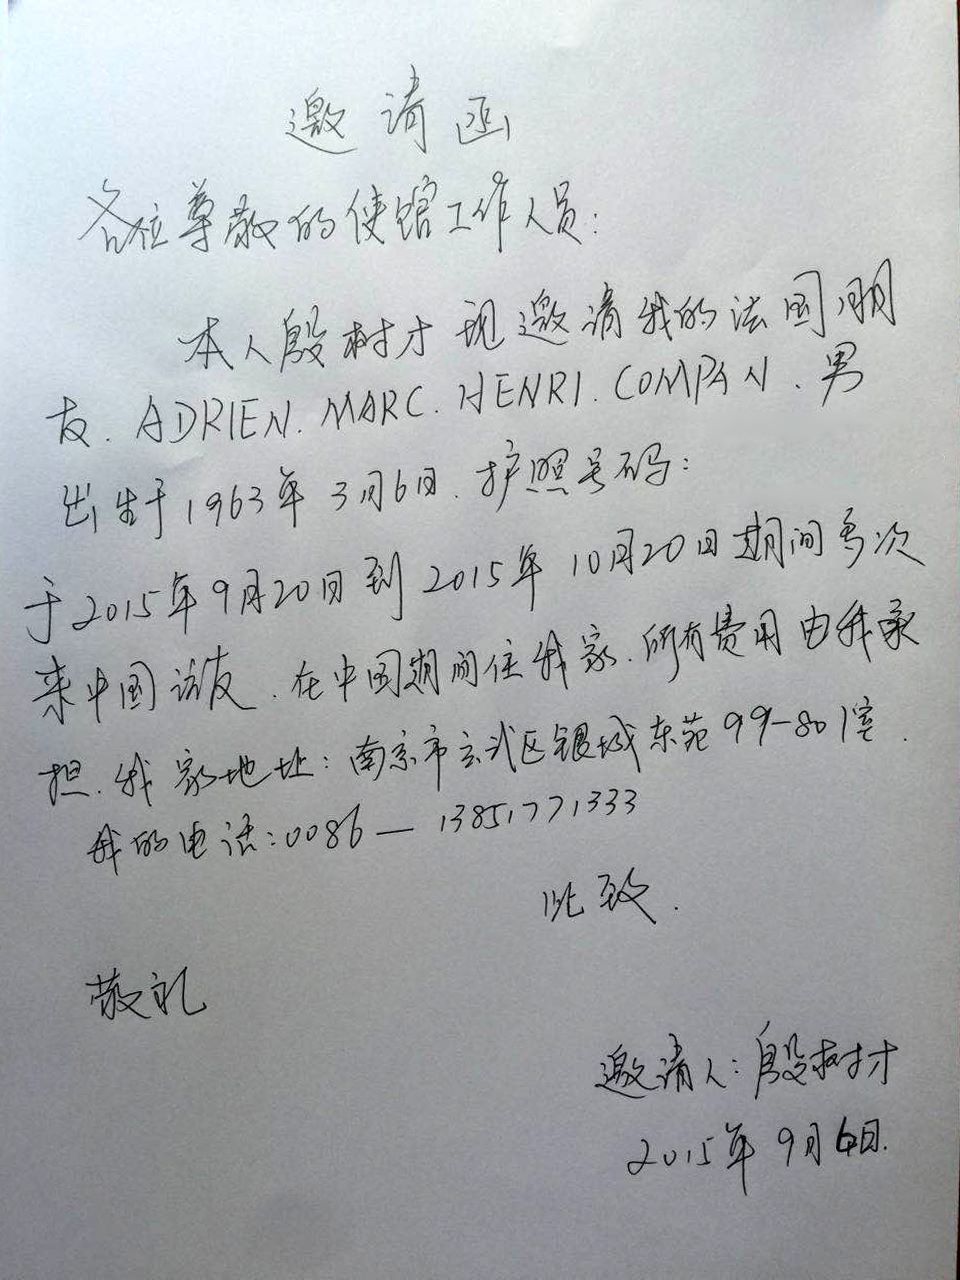 邀请函
各位尊敬的使馆工作人员:
本人殷树才现邀请我的法国朋
友. ADRIEN. MARC. HENRI. COMPAN. 男
出生于1963年3月6日. 护照号码:
于2015年9月20日到2015年10月20日期间多次
来中国访友. 在中国期间住我家. 所有费用由我承
担. 我家地址: 南京市玄武区银城东苑99-801室.
我的电话: 0086—13851771333
此致.
敬礼
邀请人: 殷树才
2015年9月6日.